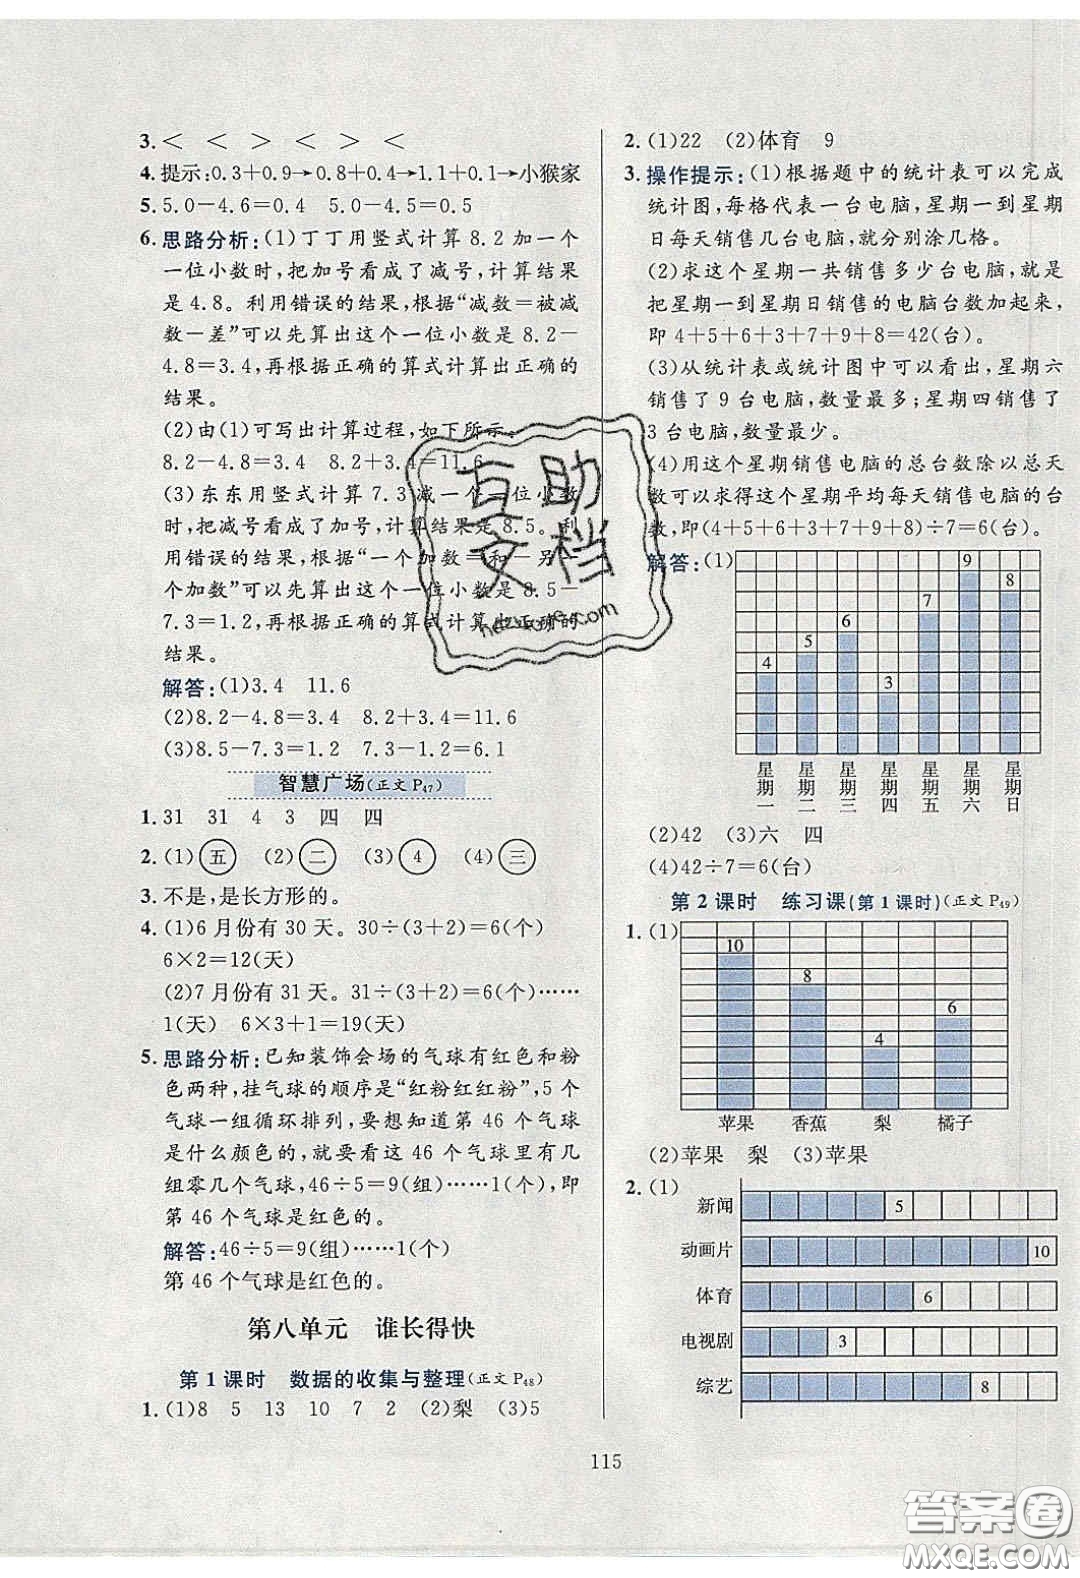 3. ＜　＜　＞　＜　＞　＜
4. 提示:0.3+0.9→0.8+0.4→1.1+0.1→小猴家
5. 5.0－4.6＝0.4　5.0－4.5＝0.5
6. 思路分析:(1)丁丁用竖式计算 8.2 加一个
一位小数时,把加号看成了减号,计算结果
是 4.8。利用错误的结果,根据“减数＝被减
数－差”可以先算出这个一位小数是 8.2－
4.8＝3.4,再根据正确的算式计算出正确的
结果。
(2)由(1)可写出计算过程,如下所示:
8.2－4.8＝3.4　8.2＋3.4＝11.6
(3)东东用竖式计算 7.3 减一个一位小数
时,把减号看成了加号,计算结果是 8.5。利
用错误的结果,根据“一个加数＝和－另一
个加数”可以先算出这个一位小数是 8.5－
7.3＝1.2,再根据正确的算式计算出正确的
结果。
解答:(1)3.4　11.6
(2)8.2－4.8＝3.4　8.2＋3.4＝11.6
(3)8.5－7.3＝1.2　7.3－1.2＝6.1
智慧广场(正文 P47)
1. 31　31　4　3　四　四
2. (1)五　(2)二　(3)4　(4)三
3. 不是,是长方形的。
4. (1)6 月份有 30 天。30÷(3＋2)＝6(个)
6×2＝12(天)
(2)7 月份有 31 天。31÷(3＋2)＝6(个)……
1(天)　6×3＋1＝19(天)
5. 思路分析:已知装饰会场的气球有红色和粉
色两种,挂气球的顺序是“红粉红红粉”,5 个
气球一组循环排列,要想知道第 46 个气球
是什么颜色的,就要看 46 个气球里有几
组零几个气球,46÷5＝9(组)……1(个),即
第 46 个气球是红色的。
解答:46÷5＝9(组)……1(个)
第 46 个气球是红色的。
第八单元　谁长得快
第 1 课时　数据的收集与整理(正文 P48)
1. (1)8　5　13　10　7　2　(2)梨　(3)5
2. (1)22　(2)体育　9
3. 操作提示:(1)根据题中的统计表可以完成
统计图,每格代表一台电脑,星期一到星期
日每天销售几台电脑,就分别涂几格。
(2)求这个星期一共销售多少台电脑,就是
把星期一到星期日销售的电脑台数加起来,
即 4＋5＋6＋3＋7＋9＋8＝42(台)。
(3)从统计表或统计图中可以看出,星期六
销售了 9 台电脑,数量最多;星期四销售了
3 台电脑,数量最少。
(4)用这个星期销售电脑的总台数除以总天
数可以求得这个星期平均每天销售电脑的台
数,即(4＋5＋6＋3＋7＋9＋8)÷7＝6(台)。
解答:(1)
4　5　6　3　7　9　8
星期一　星期二　星期三　星期四　星期五　星期六　星期日
(2)42　(3)六　四
(4)42÷7＝6(台)
第 2 课时　练习课(第 1 课时)(正文 P49)
1. (1)
10　8　4　6
苹果　香蕉　梨　橘子
(2)苹果　梨　(3)苹果
2. (1)
新闻　5
动画片　10
体育　6
电视剧　3
综艺　8
115
互助
文档
答案圈
MXQE.COM